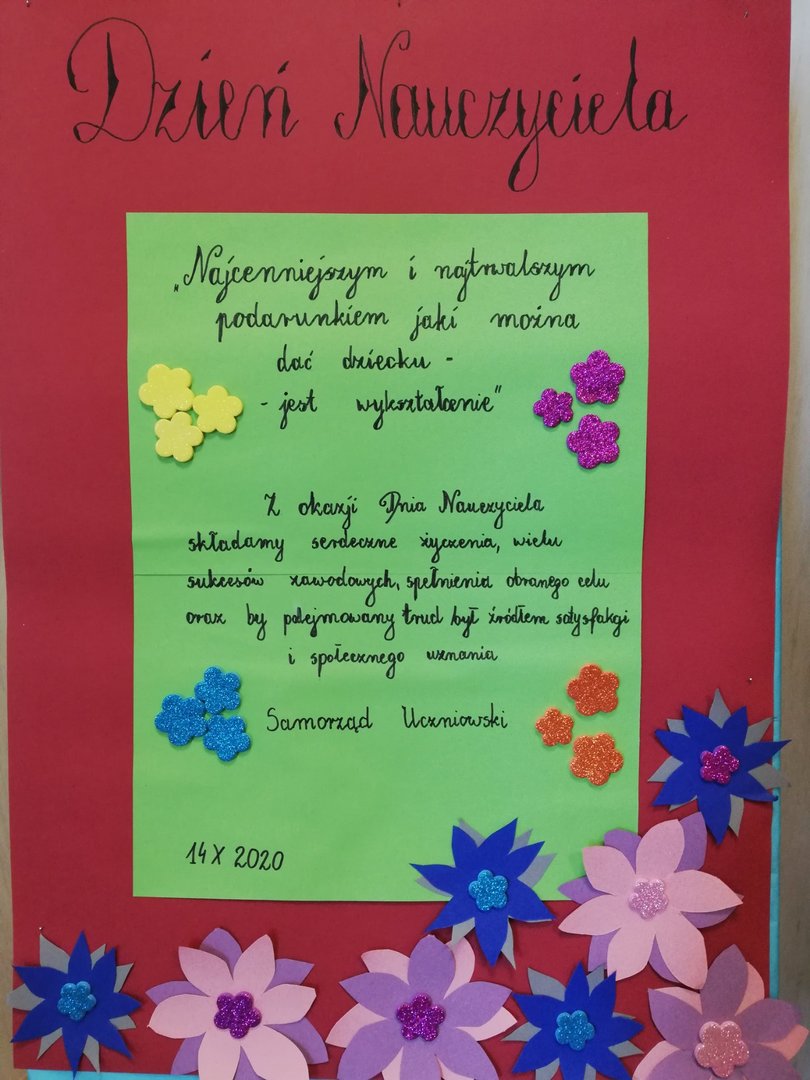 Dzień Nauczyciela
„Najcenniejszym i najtrwalszym
podarunkiem jaki można
dać dziecku -
- jest wykształcenie"
Z okazji Dnia Nauczyciela
składamy serdeczne życzenia, wielu
sukcesów zawodowych, spełnienia obranego celu
oraz by podejmowany trud był źródłem satysfakcji
i społecznego uznania
Samorząd Uczniowski
14 X 2020